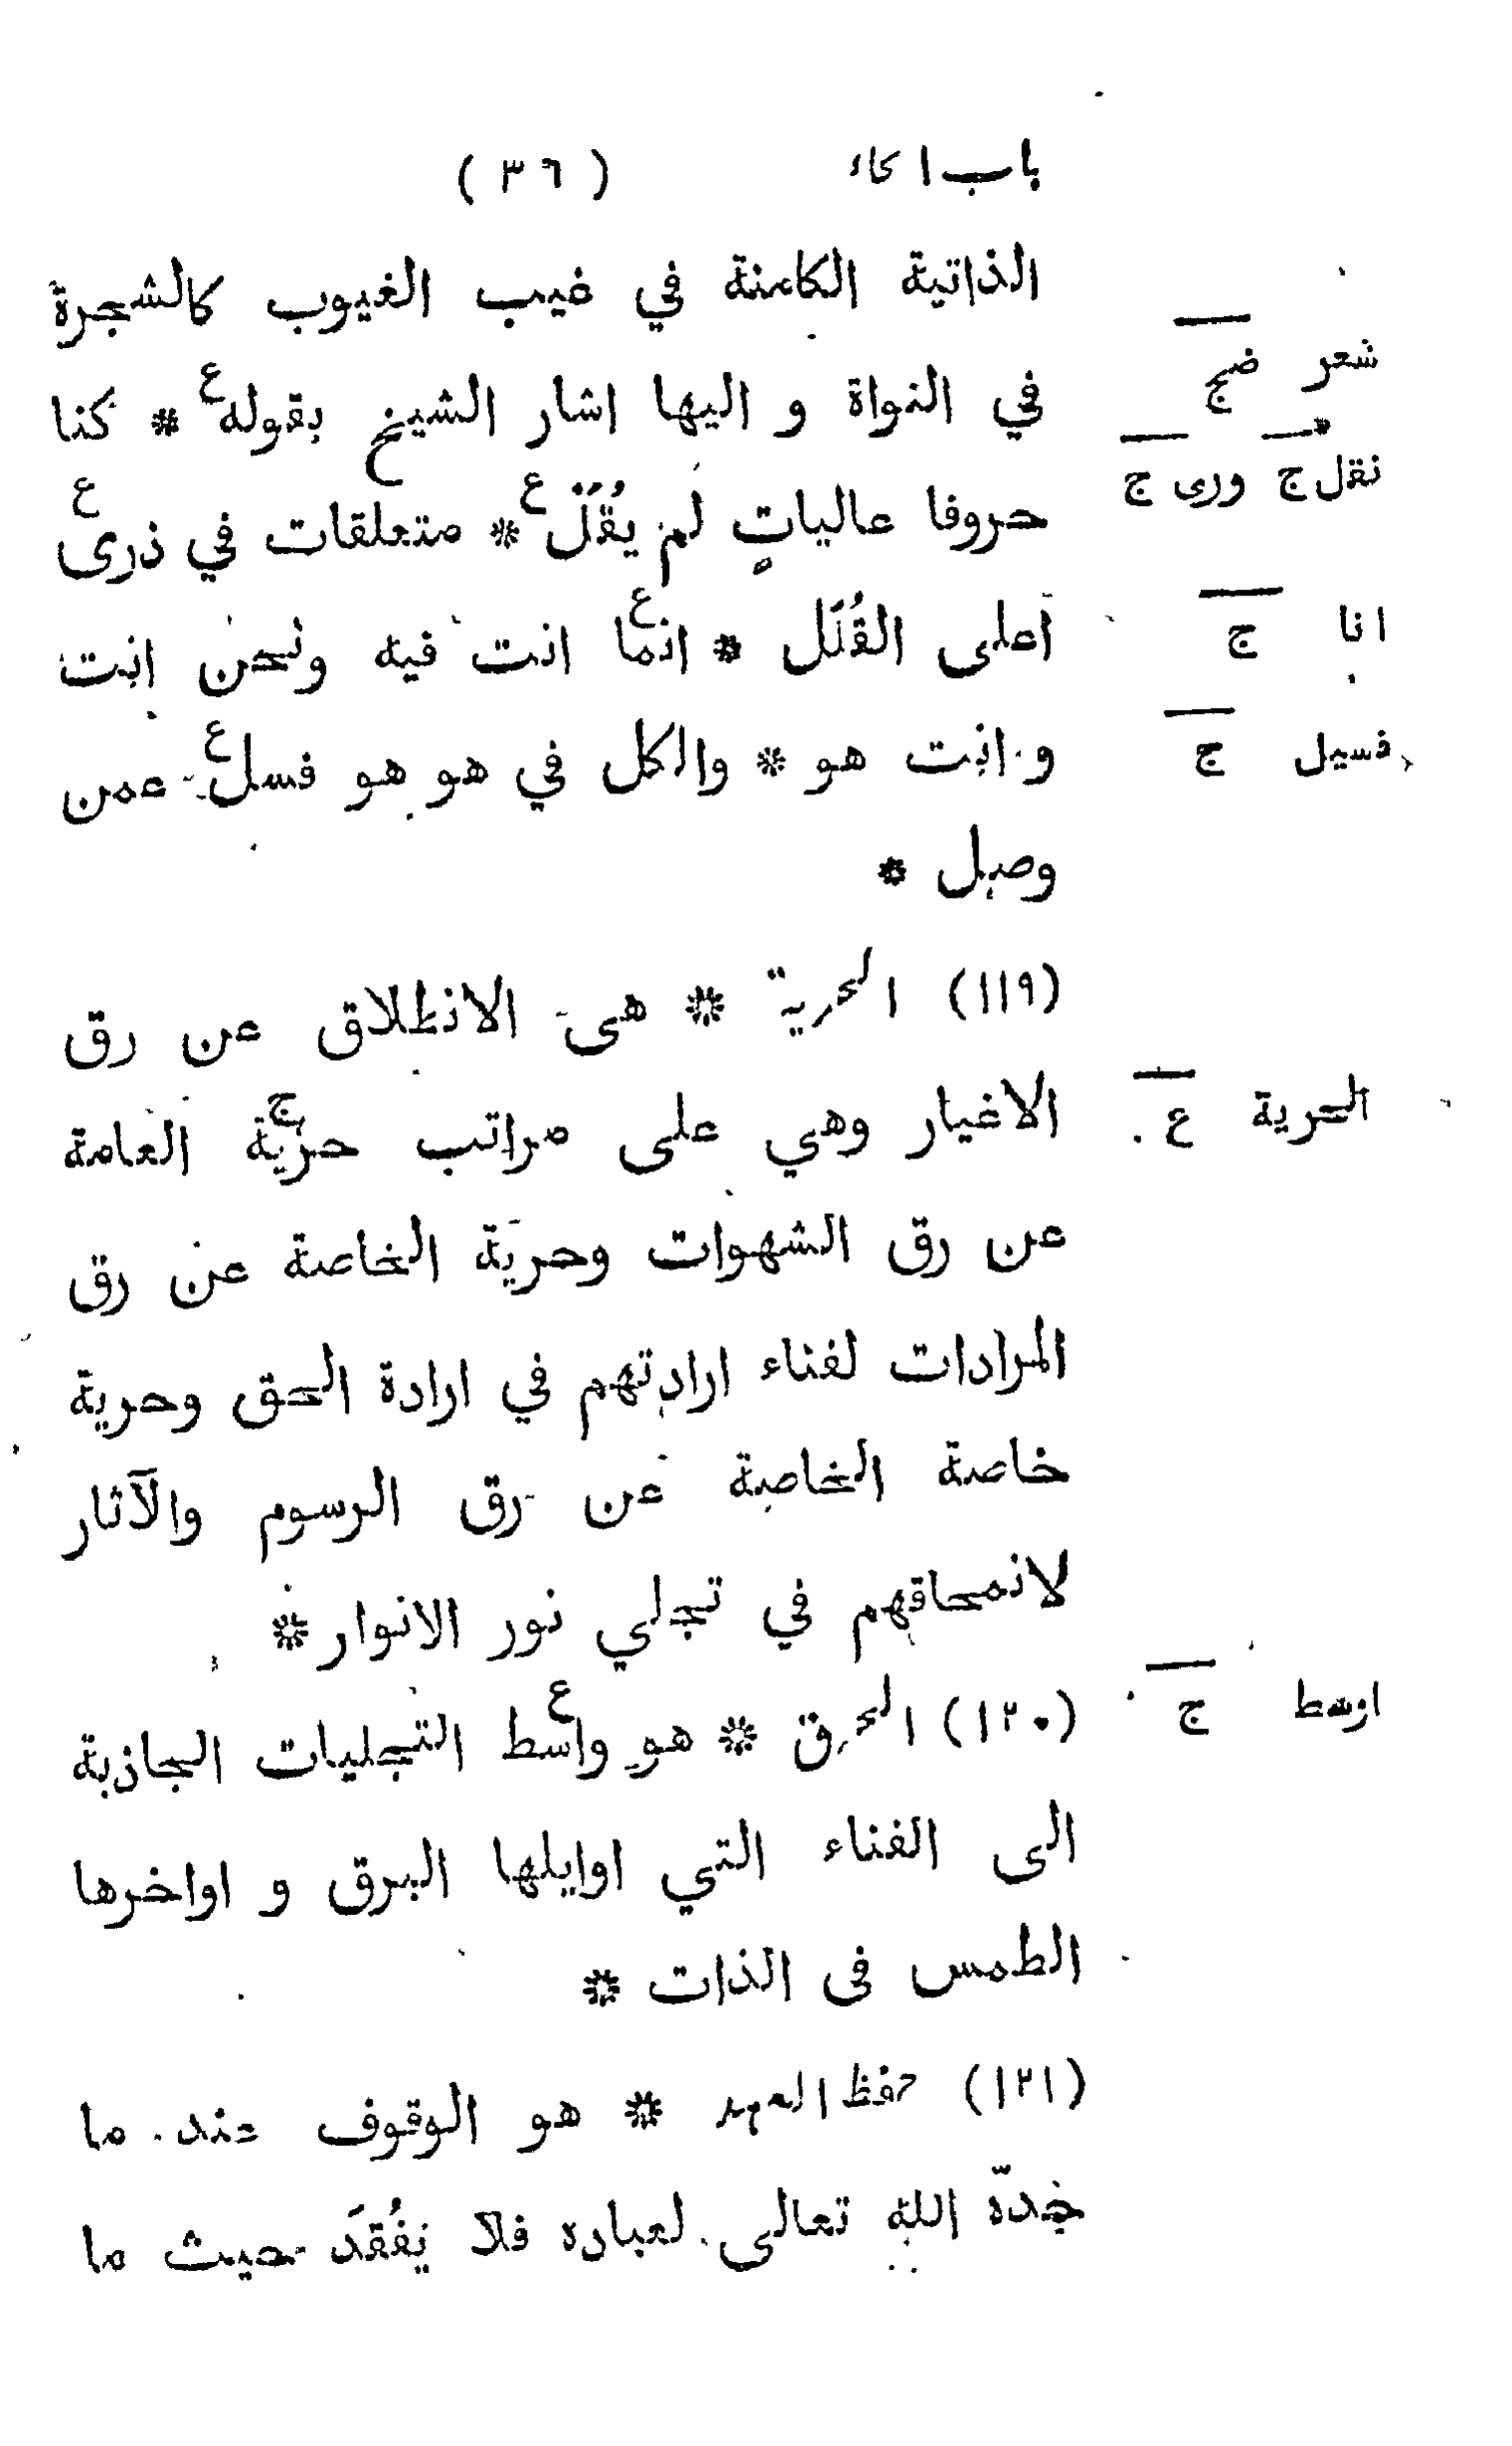 باب الحاء ( ٣٦ )
الذاتية الكامنة في غيب الغيوب كالشجرة
في النواة و اليها اشار الشيخ بقوله ع * كنا
شعر ضج
حروفا عالياتٍ لم يُقَلْ ع * متعلقات في ذرى ع
نقل ج ورى ج
أعلى القُلَل * انما ع انت فيه ونحن انت
انا ج
و انت هو * والكل في هو هو فسل ع عمن
فسيل ج
وصل *
(١١٩) الحرية * هى الانطلاق عن رق
الاغيار وهي على مراتب حرّية ج العامة
الحرية ع
عن رق الشهوات وحرية الخاصة عن رق
المرادات لفناء ارادتهم في ارادة الحق وحرية
خاصة الخاصة عن رق الرسوم والآثار
لانمحاقهم في تجلي نور الانوار *
(١٢٠) الحرق * هو واسط ع التجليات الجاذبة
اوسط ج
الى الفناء التي اوايلها البرق و اواخرها
الطمس فى الذات *
(١٢١) حفظ العهد * هو الوقوف عند ما
حدّه الله تعالى لعباده فلا يُفْقَد حيث ما